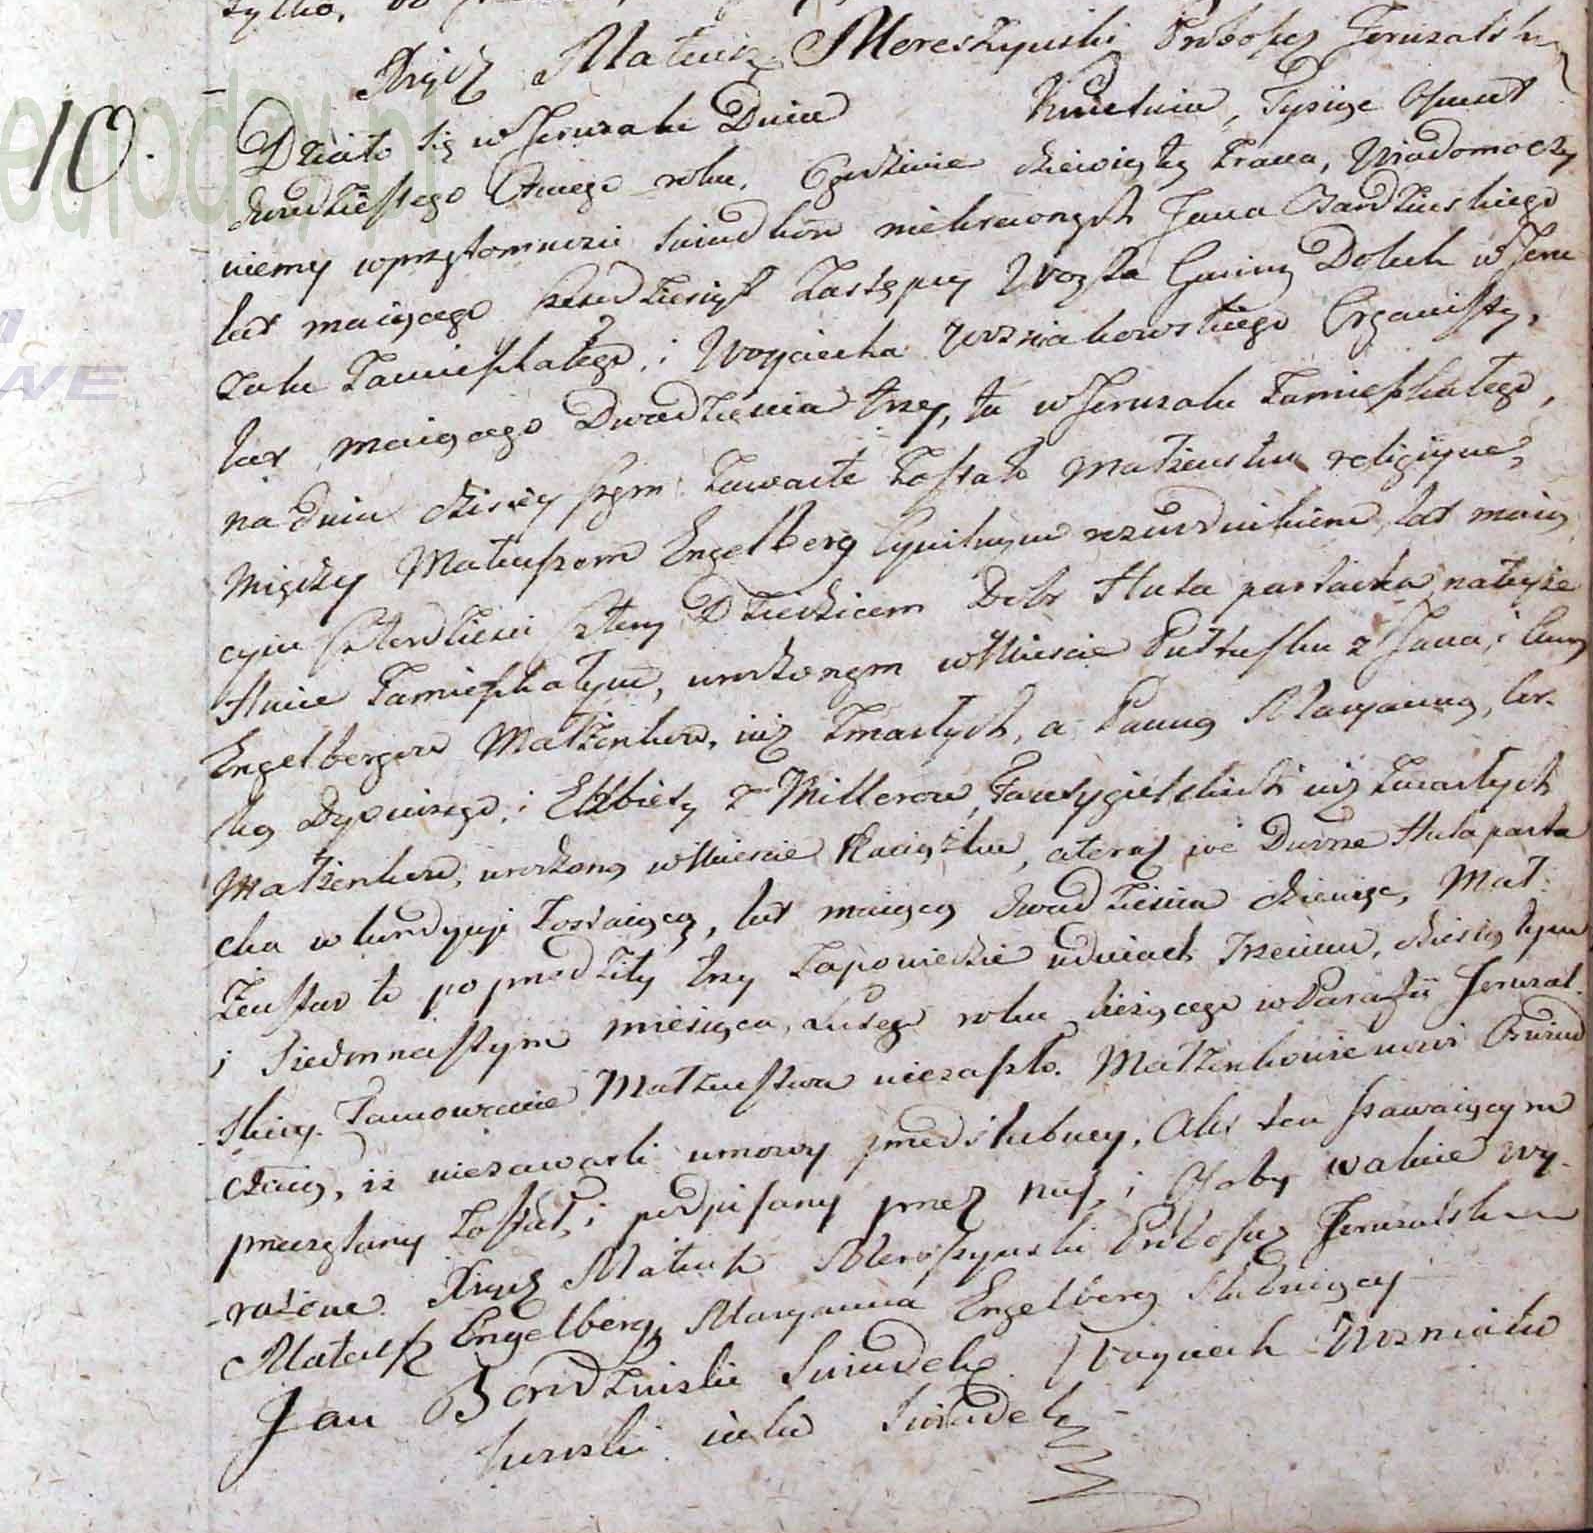 Xiądz Mateusz Mereszyński Proboszcz Jeruzalski
10.
Działo się w Jeruzalu Dnia Kwietnia, Tysiąc Osmset
dwudziestego Osmego roku, Ogodzinie dziewiątey zrana, Wiadomo czy
niemy wprzytomności świadków niekrewnych Jana Bardzińskiego
lat maiącego Zastępcy Woyta Gminy Doluh w Jeru
zalu zamieszkałego, i Woyciecha Wozniakowskiego Organisty,
lat maiącego Dwadzieścia trzy, tu w Jeruzalu zamieszkałego,
na dniu dzisieyszym zawarte zostało Małżeństwo religiyne,
między Mateuszem Engelberg Cywilnym lat maią
cym czterdzieści cztery Dziedzicem Dobr Huta partacka, natey że
Hucie zamieszkałym, urodzonym w Mieście Pułtusku z Jana, i Anny
Engelbergow Małżonkow, iuż zmarłych, a Panną Maryanną, Cor-
ką Dyonizego, i Elżbiety z Millerow, iuż zmarłych
Małżonkow, urodzoną w Mieście Raciążku, ateraz we Dworze Huta parta
cka w kondycyi zostaiącą, lat maiącą dwadzieścia dziewięć, Mał:
żeństwo to poprzedziły trzy zapowiedzie wdniach Trzecim, dziesiątym
i siedmnastym miesiąca, Lutego roku bieżącego w Parafii Jeruzal-
skiey. Tamowanie Małżeństwa niezaszło. Małżonkowie nowi Oświad
czaią, iż niezawarli umowy przedślubney, Akt ten stawaiącym
przeczytany został, i podpisany przez nas, i Osoby w akcie wy-
rażone. Xiądz Mateusz Mereszyński Proboszcz Jeruzalski
Mateusz Engelberg, Maryanna Engelberg Slubuiący
Jan Bardzinski Swiadek. Woyciech Wozniako
wski iako Swiadek